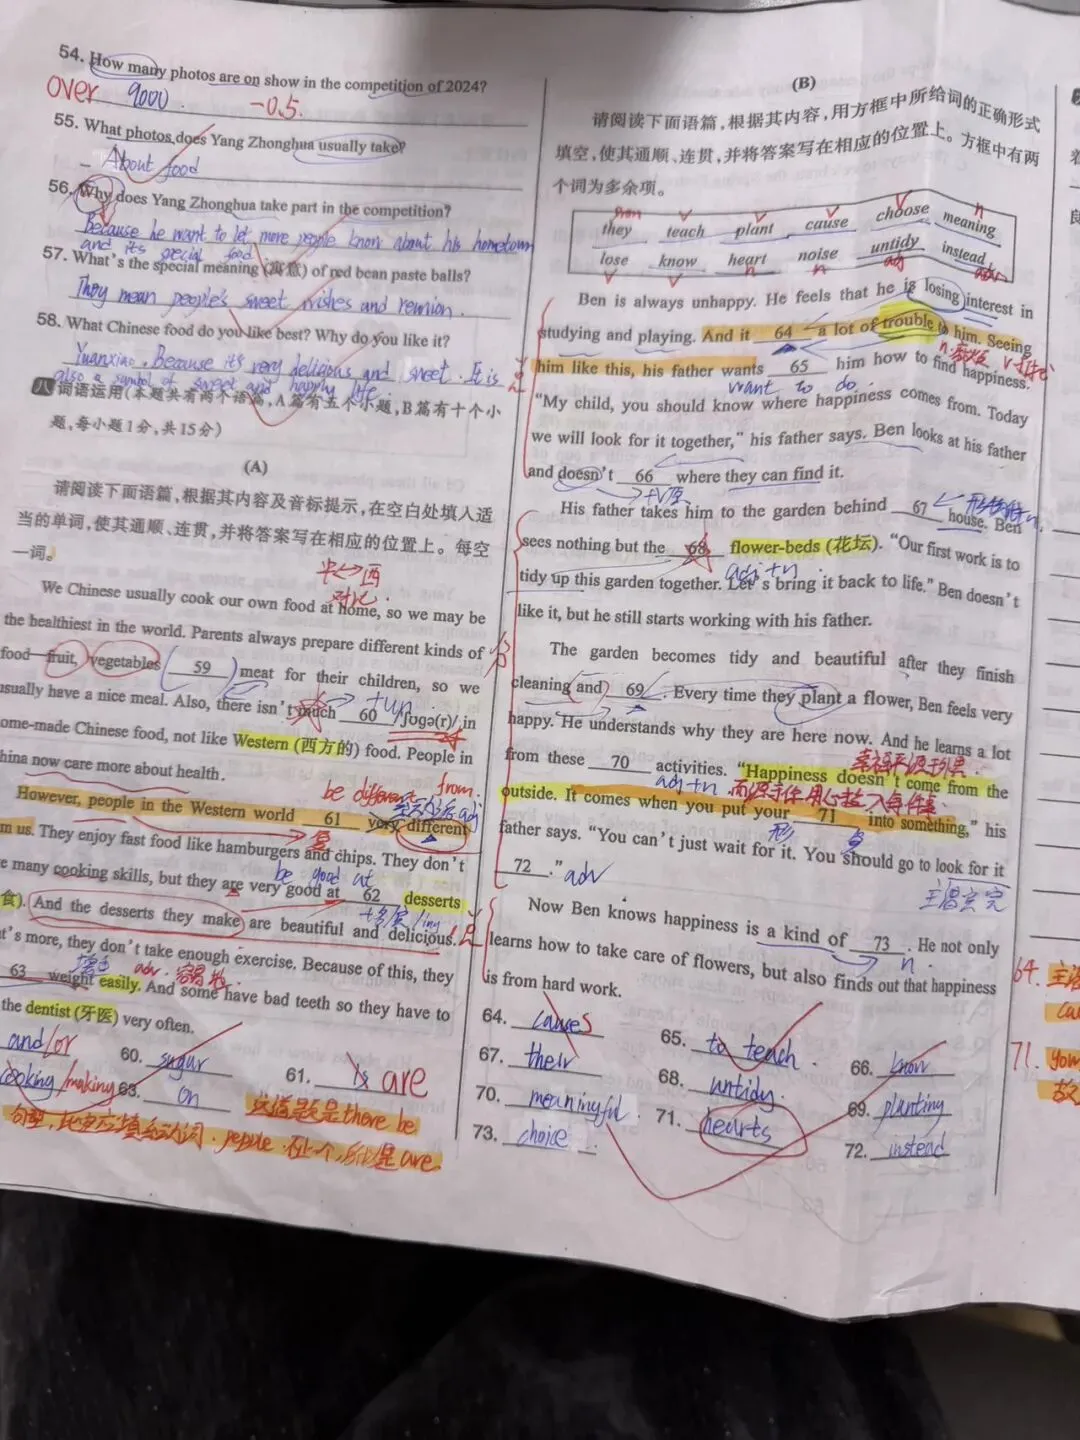 54. How many photos are on show in the competition of 2024?
over 9000. -0.5.
55. What photos does Yang Zhonghua usually take?
About food
56. Why does Yang Zhonghua take part in the competition?
Because he want to let more people know about his hometown
and it's special food
57. What's the special meaning (寓意) of red bean paste balls?
They mean people's sweet wishes and reunion.
58. What Chinese food do you like best? Why do you like it?
Yuanxiao. Because it's very delicious and sweet. It is
also a symbol of sweet and happy life.
八 词语运用(本题共有两个语篇,A篇有五个小题,B篇有十个小
题,每小题1分,共15分)
(A)
请阅读下面语篇,根据其内容及音标提示,在空白处填入适
当的单词,使其通顺、连贯,并将答案写在相应的位置上。每空
一词。
中↔西
对比
We Chinese usually cook our own food at home, so we may be
the healthiest in the world. Parents always prepare different kinds of
food—fruit, vegetables 59 meat for their children, so we
usually have a nice meal. Also, there isn't much 60 /ˈʃʊɡə(r)/ in
+un
ome-made Chinese food, not like Western (西方的) food. People in
hina now care more about health.
be different from.
However, people in the Western world 61 very different
m us. They enjoy fast food like hamburgers and chips. They don't
be good at
e many cooking skills, but they are very good at 62 desserts
食). And the desserts they make are beautiful and delicious.
t's more, they don't take enough exercise. Because of this, they
adv. 容易地
63 weight easily. And some have bad teeth so they have to
the dentist (牙医) very often.
and/or
60. sugar
61. is are
cooking/making 63. on
这道题是there be
句型,此空应填系动词.people.不止一个,所以是are.
(B)
请阅读下面语篇,根据其内容,用方框中所给词的正确形式
填空,使其通顺、连贯,并将答案写在相应的位置上。方框中有两
个词为多余项。
they teach plant cause choose meaning
lose know heart noise untidy instead
Ben is always unhappy. He feels that he is losing interest in
studying and playing. And it 64 a lot of trouble to him. Seeing
him like this, his father wants 65 him how to find happiness.
want to do
"My child, you should know where happiness comes from. Today
we will look for it together," his father says. Ben looks at his father
and doesn't 66 where they can find it.
+V原
His father takes him to the garden behind 67 house. Ben
sees nothing but the 68 flower-beds (花坛). "Our first work is to
adj+n
tidy up this garden together. Let's bring it back to life." Ben doesn't
like it, but he still starts working with his father.
The garden becomes tidy and beautiful after they finish
cleaning and 69. Every time they plant a flower, Ben feels very
happy. He understands why they are here now. And he learns a lot
from these 70 activities. "Happiness doesn't come from the
adj+n
outside. It comes when you put your 71 into something," his
father says. "You can't just wait for it. You should go to look for it
72." adv
Now Ben knows happiness is a kind of 73. He not only
n.
learns how to take care of flowers, but also finds out that happiness
is from hard work.
64. causes
65. to teach.
66. know
67. their
68. untidy.
69. planting
70. meaningful.
71. hearts
72. instead
73. choice
64. 主
71. your